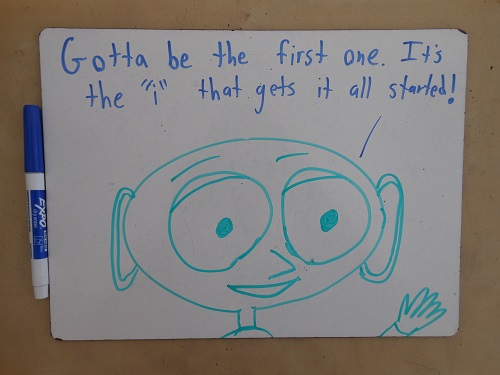 Gotta be the first one. It's
the "i" that gets it all started!
EXPO